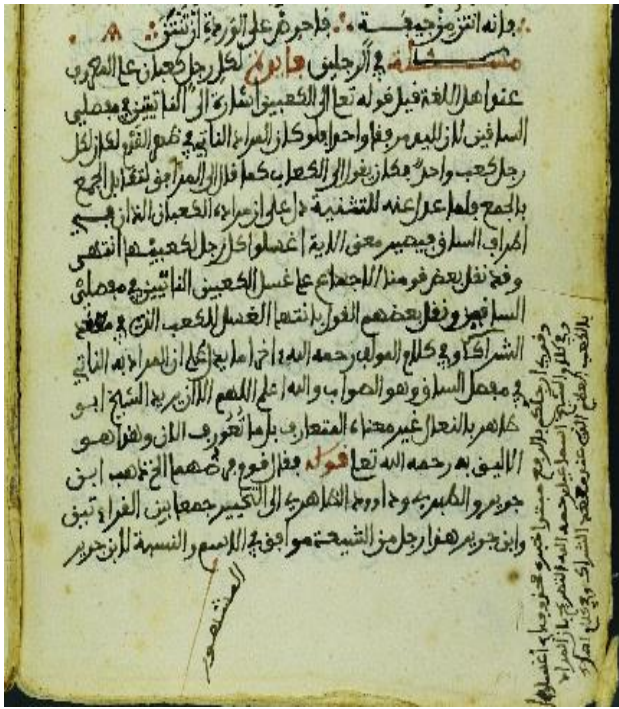 مسئلة في الرجلين فايدة لكل رجل كعبان على المعروف
عند اهل اللغة قيل قوله تعالى الى الكعبين اشارة الى الناتيين في مفصلي
الساقين لانه ليس مرفقا واحدا ولو كان المراد الناتي في ظهر القدم لكان لكل
رجل كعب واحد فكان يقول الى الكعاب كما قال الى المرافق لتقابل الجمع
بالجمع فلما عدل عنه للتثنية دل على ان مراده الكعبان اللذان في
اطراف الساق فيصير معنى الاية اغسلوا كل رجل لكعبيها انتهى
وقد نقل بعض قومنا الاجماع على غسل الكعبين الناتيين في مفصلي
الساقين ونقل بعضهم القول بانتها الغسل للكعب الذي في معقد
الشراك وفي كلام المولف رحمه الله اخرا ما يدل على ان المراد به الناتي
في مفصل الساق وهو الصواب والله اعلم اللهم الا ان يريد الشيخ ابو
طاهر بالنعال غير معناه المتعارف بل ما تعورف الان وهذا هو
الاليق به رحمه الله تعالى قوله فقال قوم فرضهما الخ ذهب ابن
جرير والطبري وداوود الظاهري الى التخيير جمعا بين القراءتين
وابن جرير هذا رجل من الشيعة موافق في الاسم والنسبة لابن جرير
المشهور
وقرئ ارجلكم بالرفع مبتدا خبره محذوف اي اغسلوها
وفي كلام الشيخ اسماعيل رحمه الله التصريح بان المراد
بالكعب العظم الذي عند معقد الشراك وفي كلام